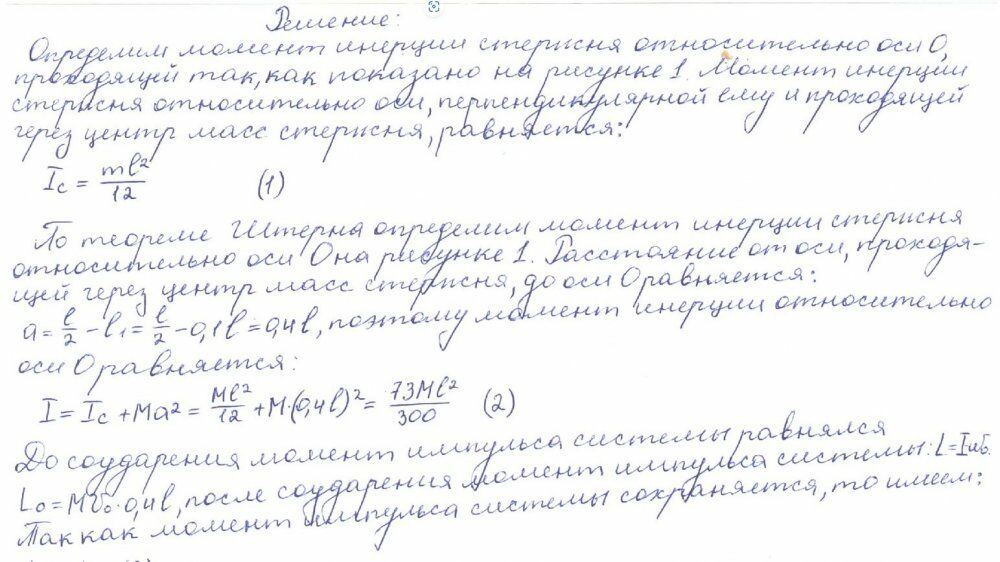 Решение:
Определим момент инерции стержня относительно оси О,
проходящей так, как показано на рисунке 1. Момент инерции
стержня относительно оси, перпендикулярной ему и проходящей
через центр масс стержня, равняется:
I_c = ml²/12 (1)
По теореме Штерна определим момент инерции стержня
относительно оси О на рисунке 1. Расстояние от оси, проходя-
щей через центр масс стержня, до оси О равняется:
a = l/2 - l₁ = l/2 - 0,1l = 0,4l, поэтому момент инерции относительно
оси О равняется:
I = I_c + Ma² = Ml²/12 + M·(0,4l)² = 73Ml²/300 (2)
До соударения момент импульса системы равнялся
L₀ = Mv₀·0,4l, после соударения момент импульса системы: L = I
Так как момент импульса системы сохраняется, то имеем: